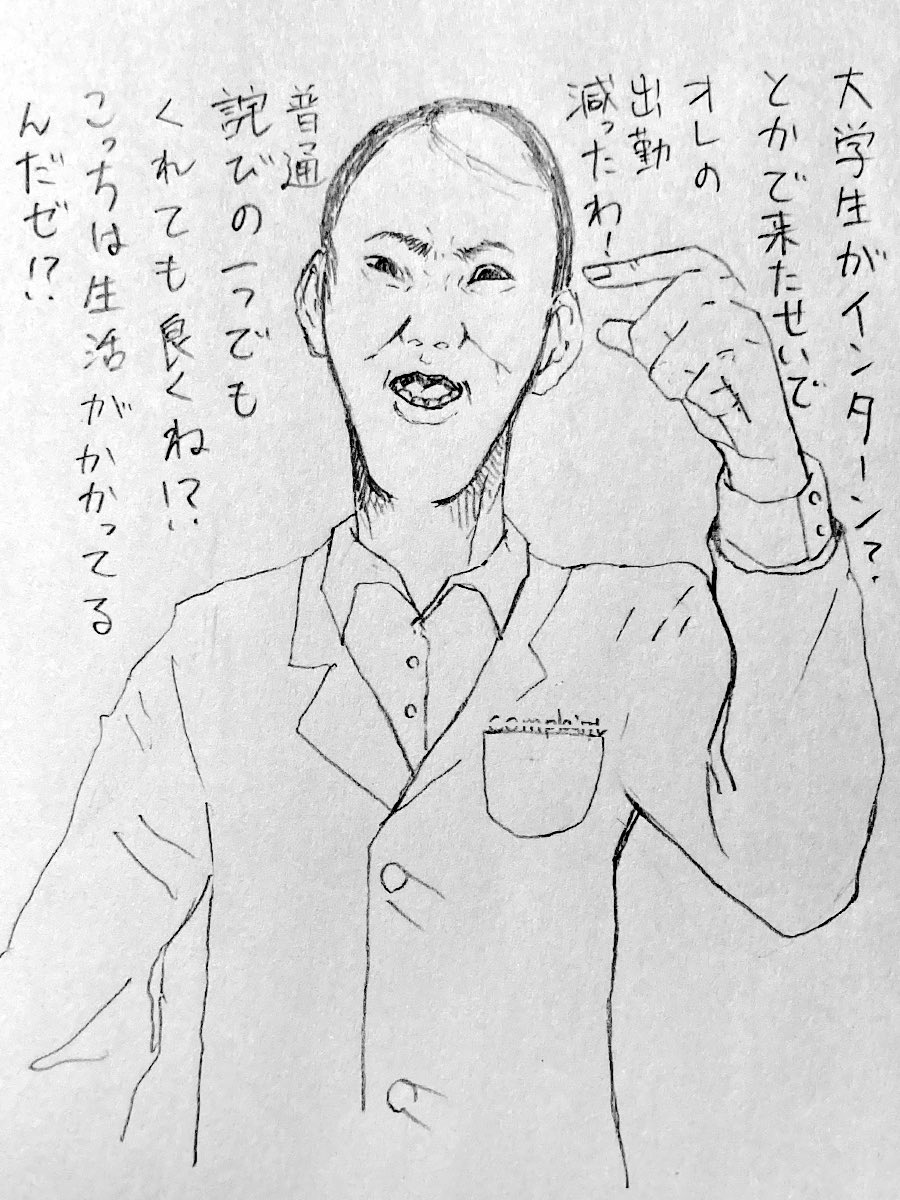 大学生がインターン?
とかで来たせいで
オレの
出勤
減ったわ!
普通
詫びの一つでも
くれても良くね!?
こっちは生活がかかってる
んだゼ!?
complaint